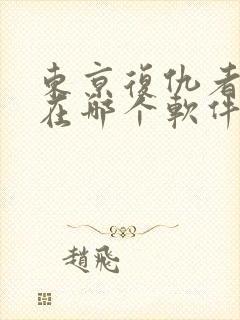 東京復仇者
在哪个軟件
趙飛